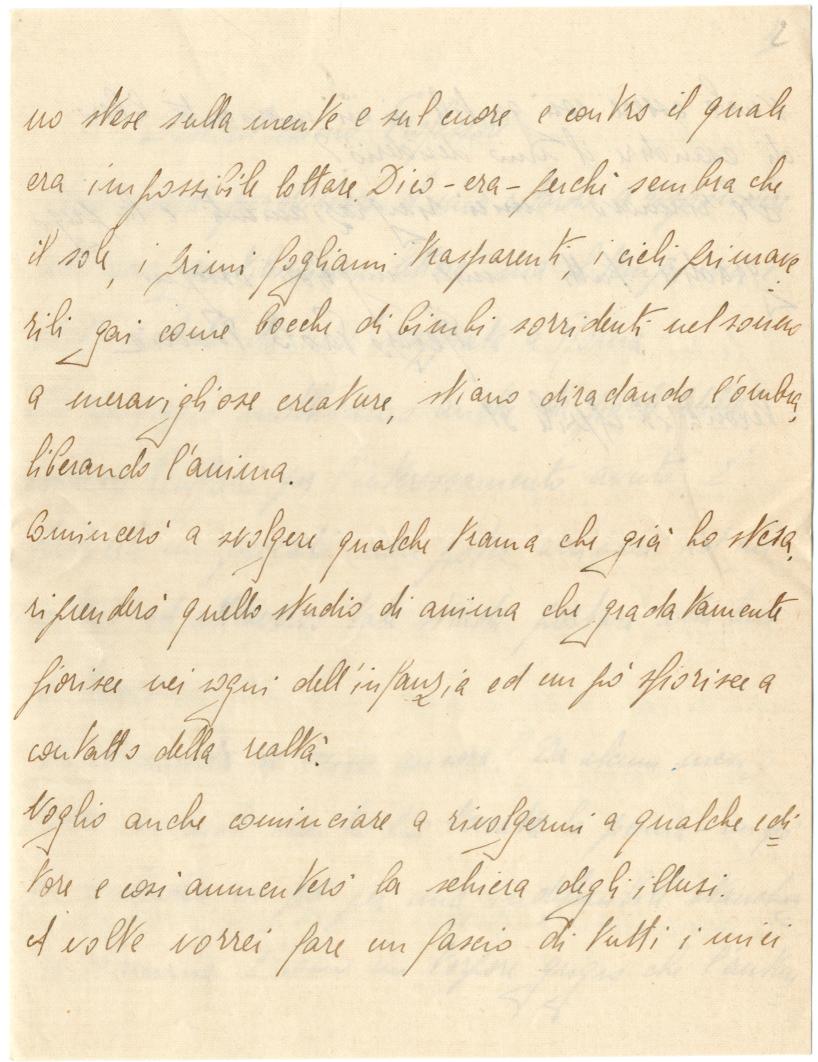 2
no stese sulla mente e sul cuore e contro il quale
era impossibile lottare. Dico - era - perchè sembra che
il sole, i primi fogliami trasparenti, i cieli primave
rili gai come bocche di bimbi sorridenti nel sonno
a meravigliose creature, stiano diradando l'ombra,
liberando l'anima.
Comincerò a svolgere qualche trama che già ho stesa,
riprenderò quello studio di anima che gradatamente
fiorisce nei sogni dell'infanzia ed un pò sfiorisce a
contatto della realtà.
Voglio anche cominciare a rivolgermi a qualche edi
tore e così aumenterò la schiera degli illusi.
A volte vorrei fare un fascio di tutti i miei